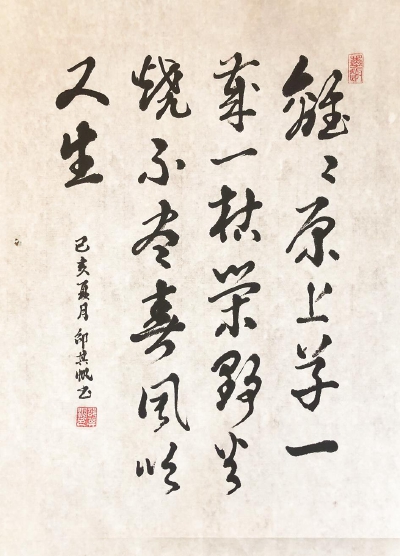 離々原上草一
歲一枯榮野火
燒不盡春風吹
又生
己亥夏月邱其帆书